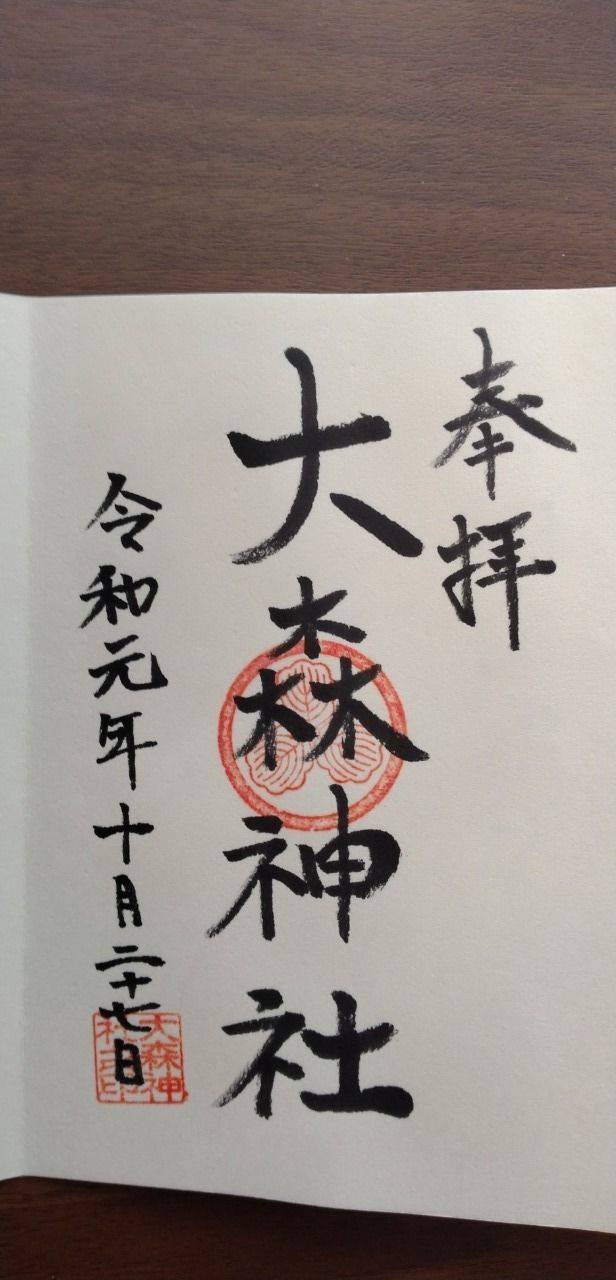 奉拝
大森神社
令和元年十月二十七日
大森神
社之印